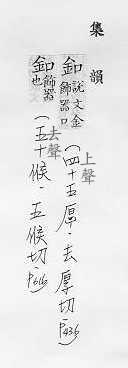 集韻
釦 說文金飾器口 上聲
(四十五厚·去厚切·P436)
釦 飾器也 去聲
(五十候·丘候切·P616)